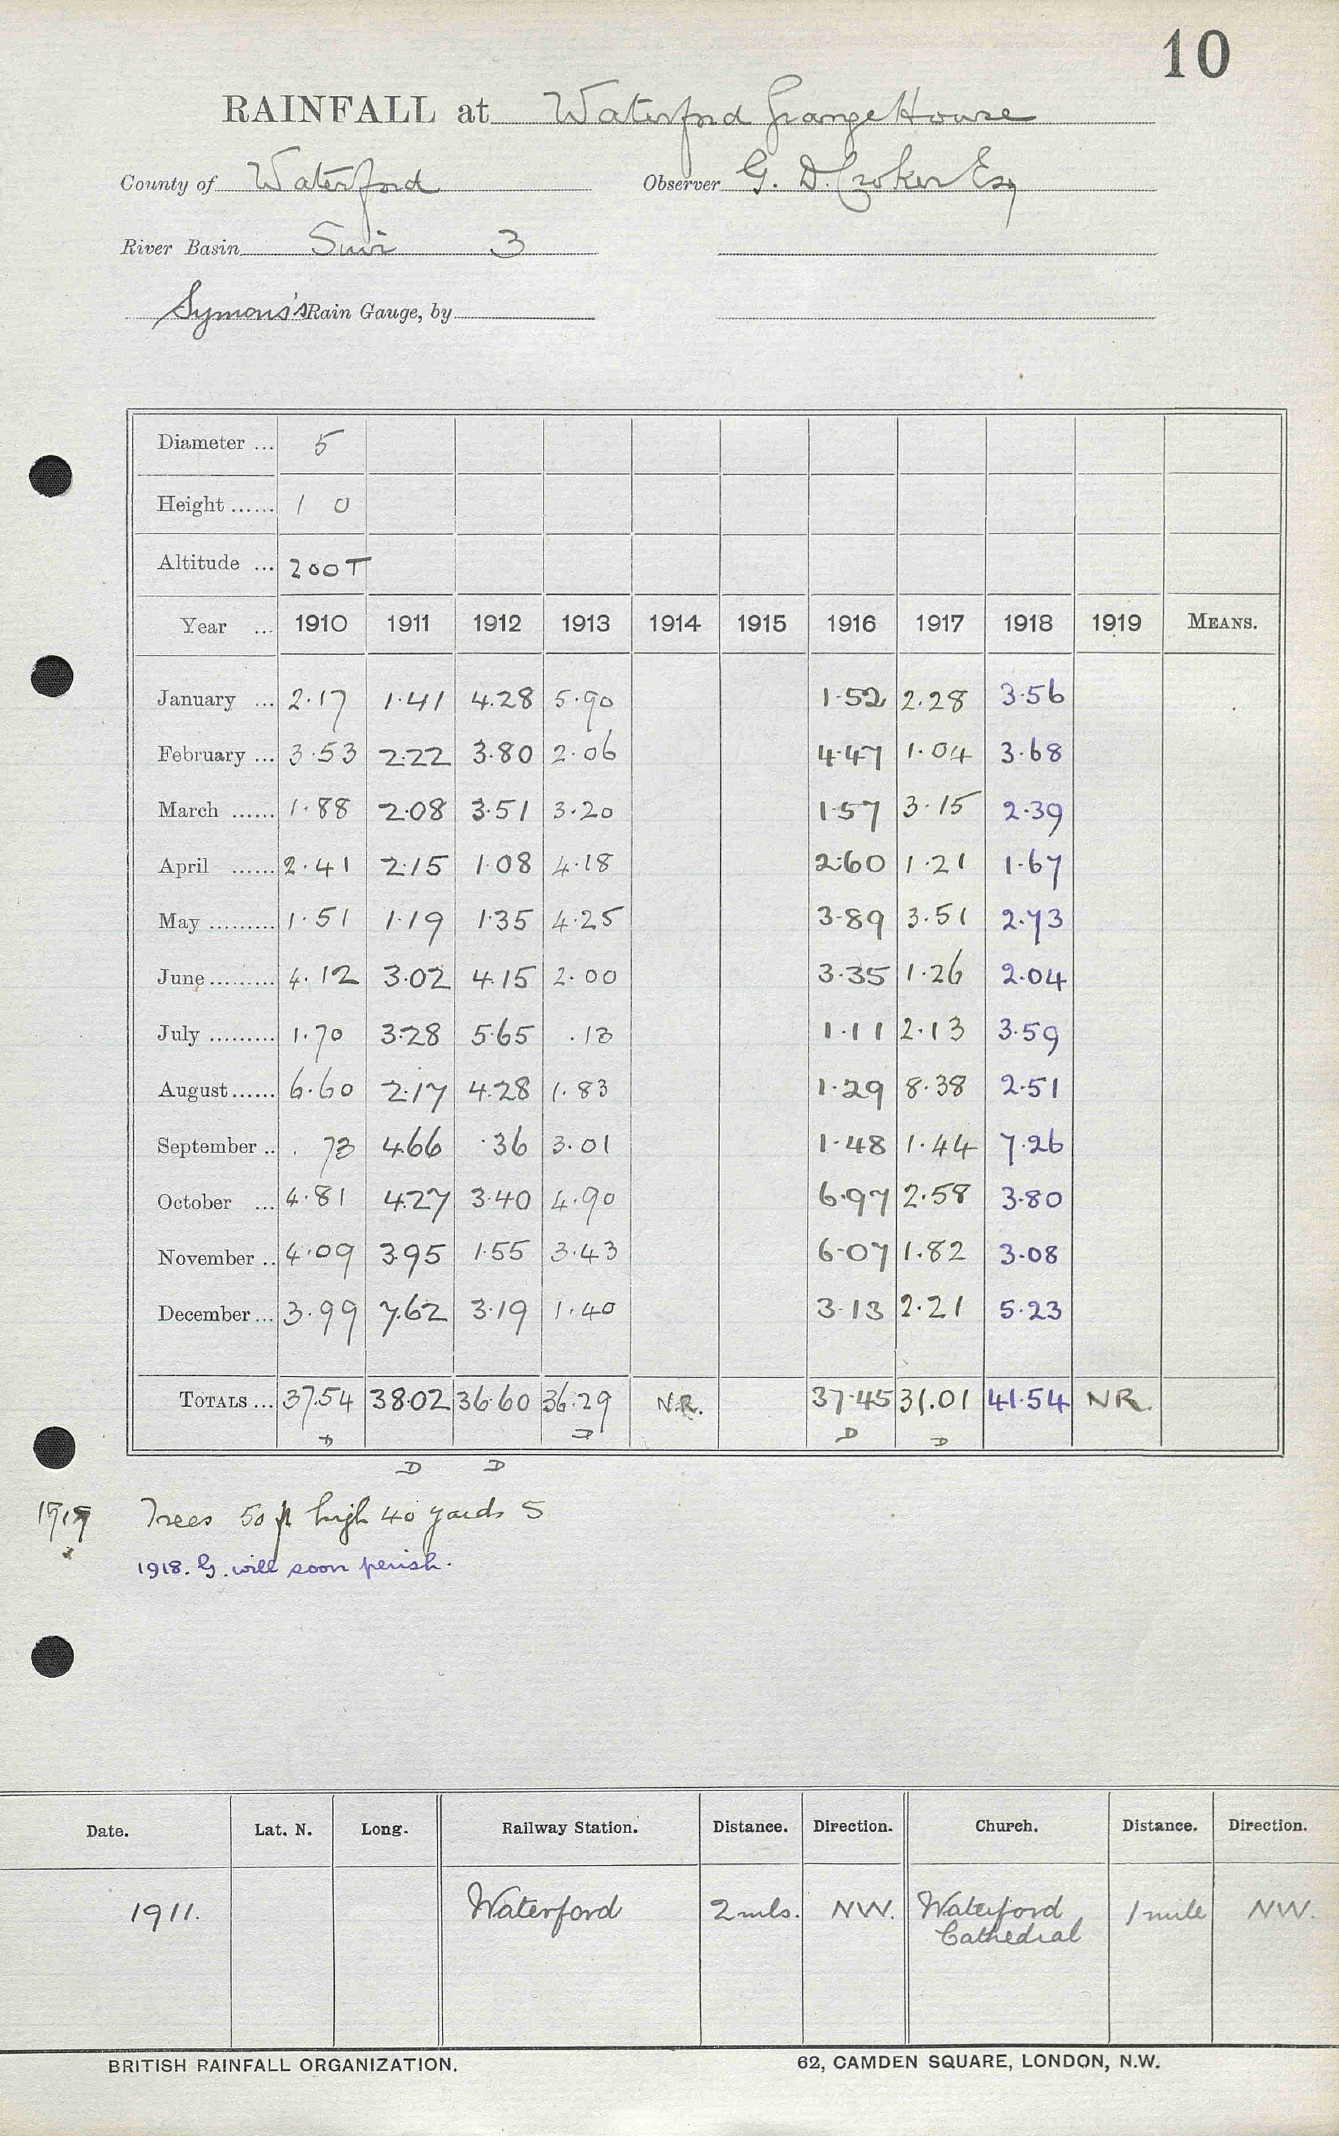 10
RAINFALL at Waterford Grange House
County of Waterford Observer G. D. Croker Esq
River Basin Suir 3
Symons's Rain Gauge, by
Diameter ... 5
Height ...... 1 0
Altitude ... 200T
Year ... 1910 1911 1912 1913 1914 1915 1916 1917 1918 1919 MEANS.
January ... 2.17 1.41 4.28 5.90 1.52 2.28 3.56
February ... 3.53 2.22 3.80 2.06 4.47 1.04 3.68
March ...... 1.88 2.08 3.51 3.20 1.57 3.15 2.39
April ...... 2.41 2.15 1.08 4.18 2.60 1.21 1.67
May ......... 1.51 1.19 1.35 4.25 3.89 3.51 2.73
June ......... 4.12 3.02 4.15 2.00 3.35 1.26 2.04
July ......... 1.70 3.28 5.65 .13 1.11 2.13 3.59
August ...... 6.60 2.17 4.28 1.83 1.29 8.38 2.51
September .. .73 4.66 .36 3.01 1.48 1.44 7.26
October ... 4.81 4.27 3.40 4.90 6.97 2.58 3.80
November .. 4.09 3.95 1.55 3.43 6.07 1.82 3.08
December ... 3.99 7.62 3.19 1.40 3.13 2.21 5.23
TOTALS ... 37.54 38.02 36.60 36.29 N.R. 37.45 31.01 41.54 NR.
D D D D
D D
Trees 50 ft high 40 yards S
1918. G. will soon perish.
Date. Lat. N. Long. Railway Station. Distance. Direction. Church. Distance. Direction.
1911. Waterford 2 mls. NW. Waterford 1 mile NW.
Cathedral
BRITISH RAINFALL ORGANIZATION. 62, CAMDEN SQUARE, LONDON, N.W.